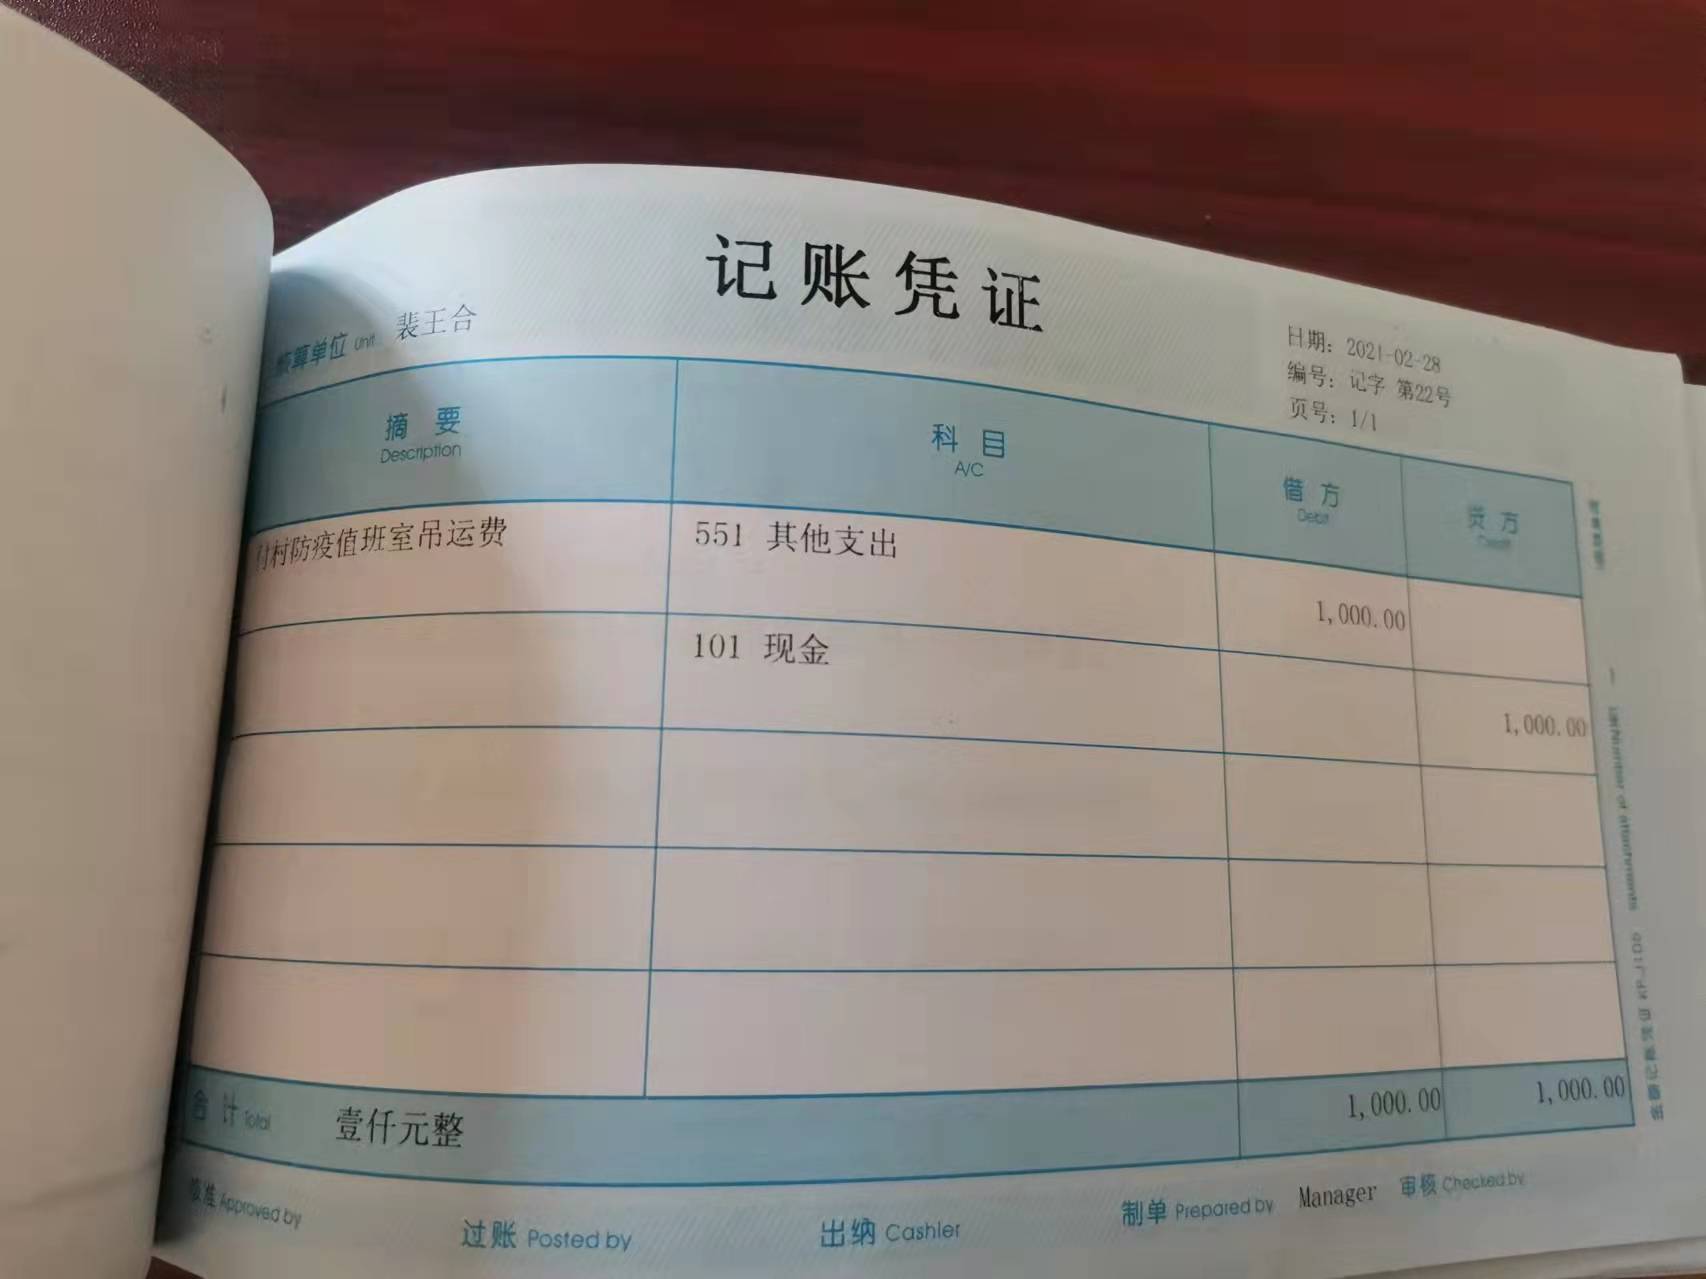 记账凭证
核算单位 Unit 裴王合
日期: 2021-02-28
编号: 记字 第22号
页号: 1/1
摘要 科目 借方 贷方
Description A/C Debit Credit
付村防疫值班室吊运费 551 其他支出 1,000.00
101 现金 1,000.00
合计 Total 壹仟元整 1,000.00 1,000.00
核准 Approved by 过账 Posted by 出纳 Cashier 制单 Prepared by Manager 审核 Checked by